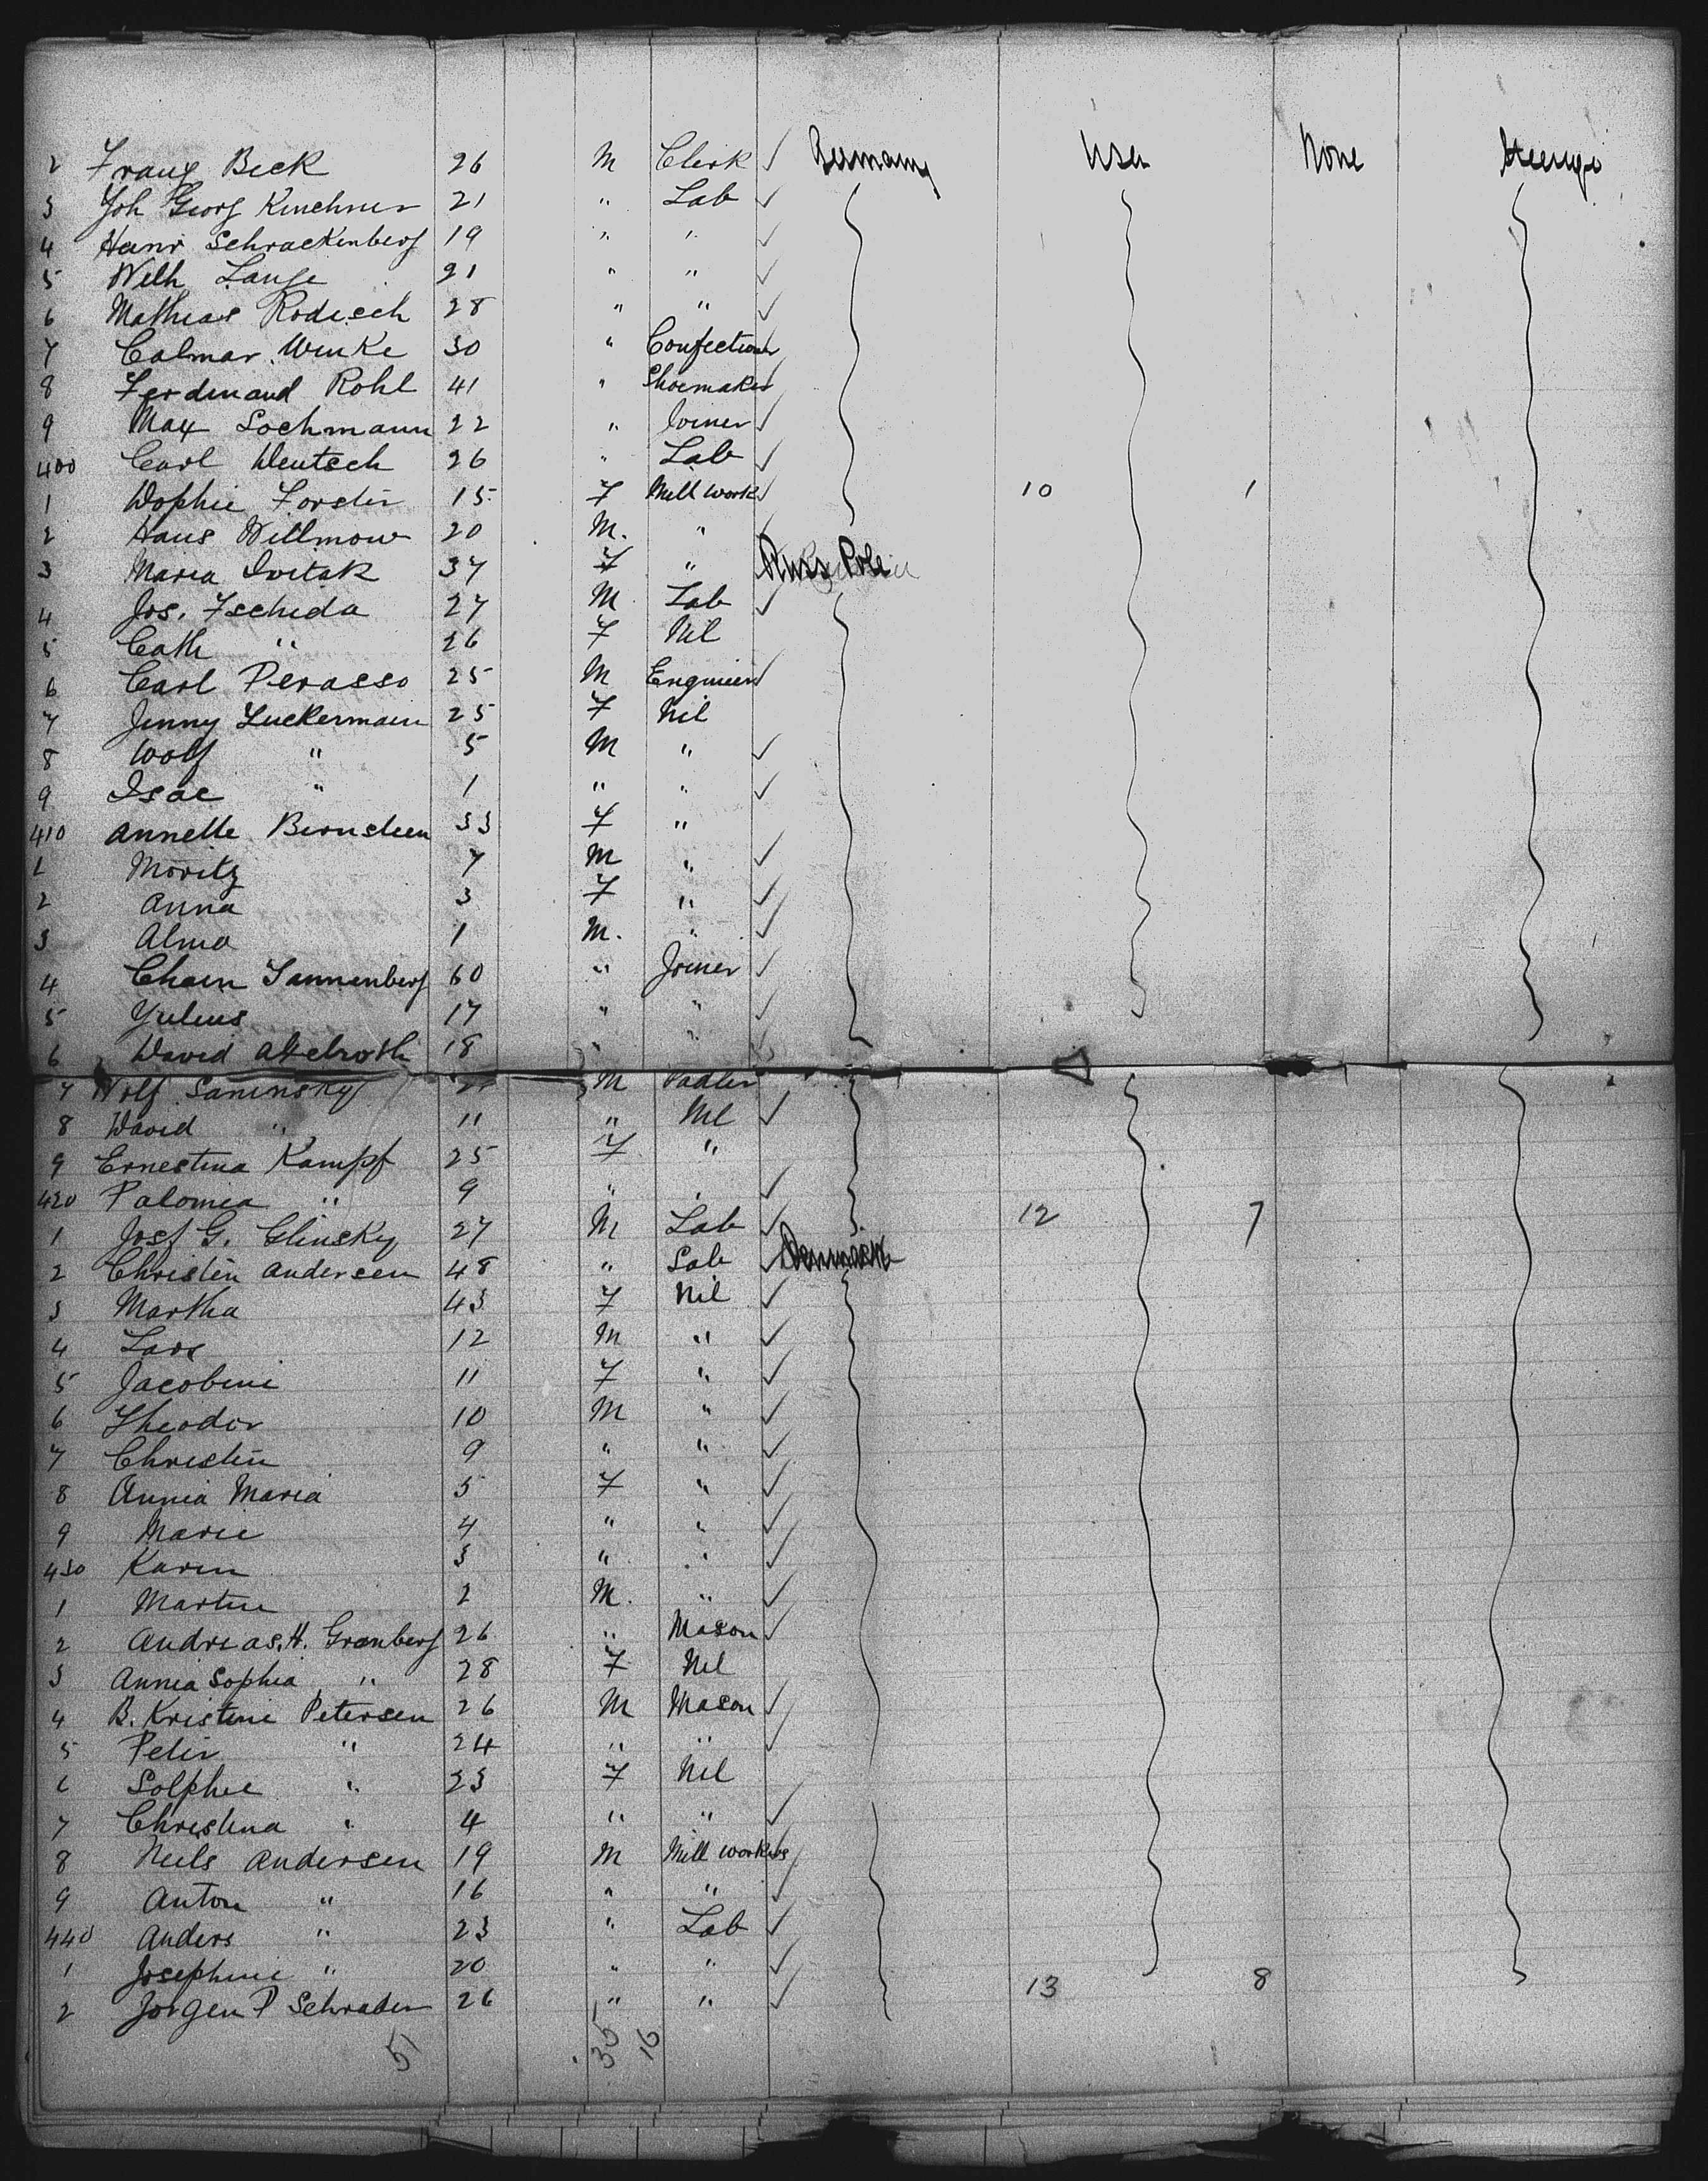 2 Franz Beck 26 M Clerk ✓ Germany USA None Steerage
3 Joh Georg Kirchner 21 " Lab ✓
4 Hans Schrackenberg 19 " " ✓
5 Wilh Lange 21 " " ✓
6 Mathias Rodisch 28 " " ✓
7 Calmar Winke 30 " Confectioner
8 Ferdinand Rohl 41 " Shoemaker
9 Max Lochmann 22 " Joiner ✓
400 Carl Wentsch 26 " Lab ✓
1 Wophie Forster 15 F Mill work ✓ 10 1
2 Hans Willmow 20 M. " ✓
3 Maria 37 F " Russ Pole
4 Jos. Tschida 27 M Lab ✓
5 Cath " 26 F Nil
6 Carl Perasso 25 M Engineer ✓
7 Jenny Zuckermain 25 F Nil
8 Wolf " 5 M " ✓
9 Isac " 1 " " ✓
410 Annette Bernsteen 33 F "
1 Moritz 7 M " ✓
2 Anna 3 F " ✓
3 Alma 1 M. " ✓
4 Chaen Tannenberg 60 " Joiner ✓
5 Yulius 17 " " ✓
6 David Axelroth 18 " " ✓
7 Wolf Saninsky M Padler
8 David " 11 " Nil ✓
9 Ernestina Kampf 25 F "
420 Palomea " 9 " " ✓
1 Josf G. Glinsky 27 M Lab ✓ 12 7
2 Christin Andersen 48 " Lab ✓ Denmark
3 Martha 43 F Nil ✓
4 Lars 12 M " ✓
5 Jacobine 11 F " ✓
6 Theodor 10 M " ✓
7 Christin 9 " " ✓
8 Annia Maria 5 F " ✓
9 Marie 4 " " ✓
430 Karen 3 " " ✓
1 Martin 2 M. " ✓
2 Andreas. H. Granberg 26 " Mason ✓
3 Annia Sophia " 28 F Nil
4 B. Kristine Petersen 26 M Mason ✓
5 Peter " 24 " " ✓
6 Solphie " 23 F Nil
7 Christina " 4 " " ✓
8 Neils Andersen 19 M Mill workers ✓
9 Anton " 16 " " ✓
440 Anders " 23 " Lab ✓
1 Josephine " 20 " " ✓ 13 8
2 Jorgen P Schrader 26 " " ✓
51 35 16